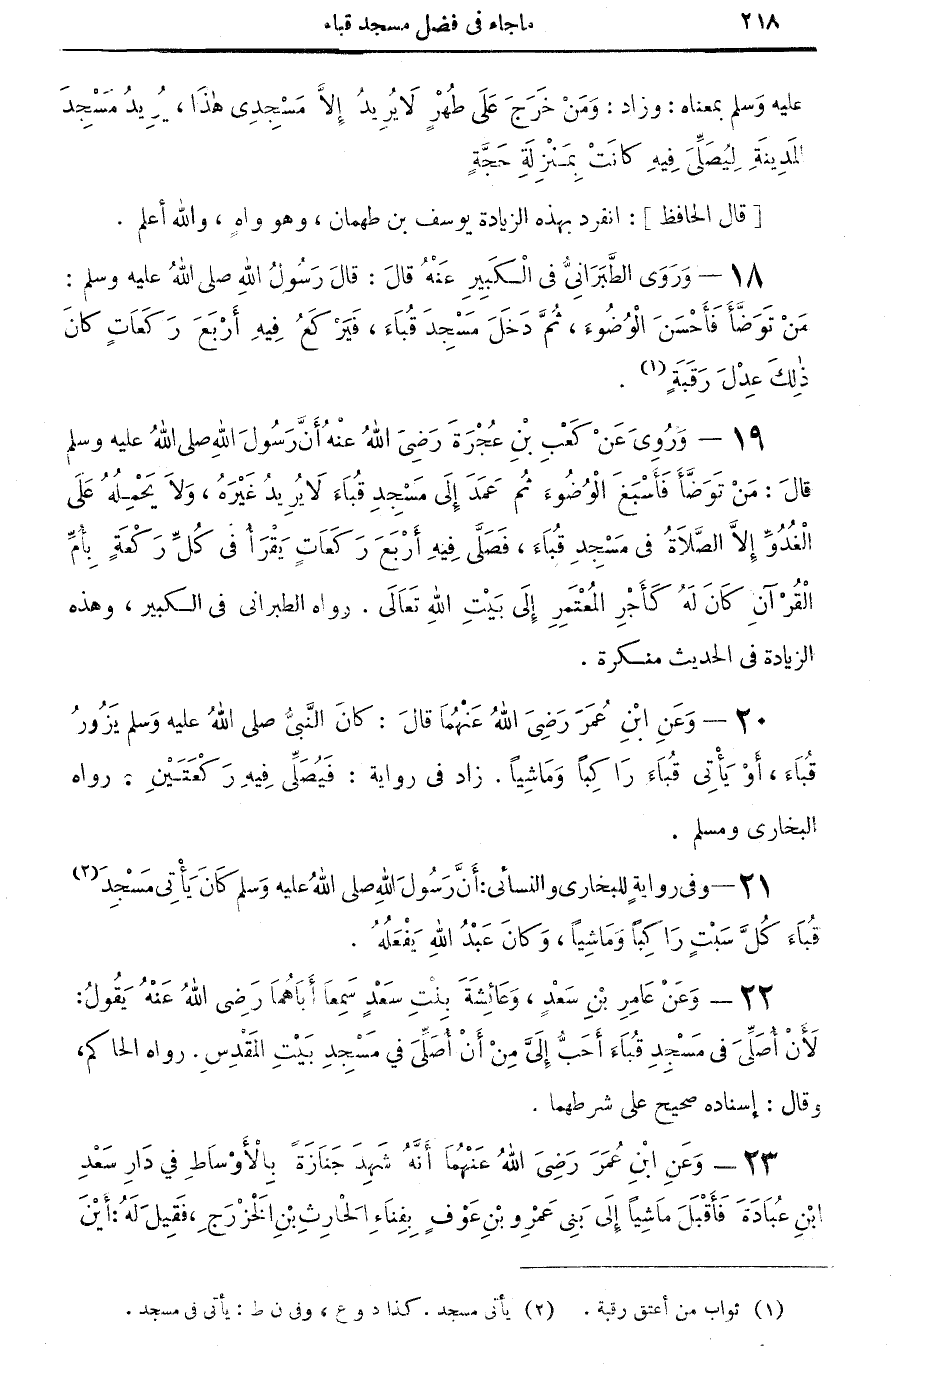 ٢١٨ ماجاء فى فضل مسجد قباء
عليه وَسلم بمعناه : وزاد : وَمَنْ خَرَجَ عَلَى طُهْرٍ لَا يُرِيدُ إِلاَّ مَسْجِدِى هٰذَا ، يُرِيدُ مَسْجِدَ
المَدِينَةِ لِيُصَلِّىَ فِيهِ كَانَتْ بِمَنْزِلَةِ حَجَّةٍ
[ قال الحافظ ] : انفرد بهذه الزيادة يوسف بن طهمان ، وهو واهٍ ، والله أعلم .
١٨ — وَرَوَى الطَّبَرَانِىُّ فى الْكَبِيرِ عَنْهُ قالَ : قالَ رَسُولُ اللهِ صلى اللهُ عليه وسلم :
مَنْ تَوَضَّأَ فَأَحْسَنَ الْوُضُوءَ ، ثُمَّ دَخَلَ مَسْجِدَ قُبَاءَ ، فَيَرْكَعُ فِيهِ أَرْبَعَ رَكَعَاتٍ كانَ
ذٰلِكَ عِدْلَ رَقَبَةٍ (١) .
١٩ — وَرُوِىَ عَنْ كَعْبِ بْنِ عُجْرَةَ رَضِىَ اللهُ عنْهُ أَنَّ رَسُولَ اللهِ صلى اللهُ عليه وسلم
قالَ : مَنْ تَوَضَّأَ فَأَسْبَغَ الْوُضُوءَ ثُم عَمَدَ إِلَى مَسْجِدِ قُبَاءَ لَا يُرِيدُ غَيْرَهُ ، وَلاَ يَحْمِلُهُ عَلَى
الْغُدُوِّ إِلاَّ الصَّلَاةُ فى مَسْجِدِ قُبَاءَ ، فَصَلَّى فِيهِ أَرْبَعَ رَكَعَاتٍ يَقْرَأُ فى كُلِّ رَكْعَةٍ بِأُمِّ
الْقُرْآنِ كَانَ لَهُ كَأَجْرِ المُعْتَمِرِ إِلَى بَيْتِ اللهِ تَعَالَى . رواه الطبرانى فى الكبير ، وهذه
الزيادة فى الحديث منكرة .
٢٠ — وَعَنِ ابْنِ عُمَرَ رَضِىَ اللهُ عَنْهُمَا قالَ : كانَ النَّبِىُّ صلى اللهُ عليه وَسلم يَزُورُ
قُبَاءَ ، أَوْ يَأْتِى قُبَاءَ رَاكِبًا وَمَاشِياً . زاد فى رواية : فَيُصَلِّى فِيهِ رَكْعَتَيْنِ : رواه
البخارى ومسلم .
٢١ — وفى روايةٍ للبخارى والنسائى : أَنَّ رَسُولَ اللهِ صلى اللهُ عليه وَسلم كَانَ يَأْتِى مَسْجِدَ (٢)
قُبَاءَ كُلَّ سَبْتٍ رَاكِباً وَمَاشِياً ، وَكانَ عَبْدُ اللهِ يَفْعَلُهُ .
٢٢ — وَعَنْ عَامِرِ بْنِ سَعْدٍ ، وَعَائِشَةَ بِنْتِ سَعْدٍ سَمِعَا أَبَاهُمَا رَضِى اللهُ عَنْهُ يَقُولُ :
لَأَنْ أُصَلِّىَ فى مَسْجِدِ قُبَاءَ أَحَبُّ إِلَىَّ مِنْ أَنْ أُصَلِّىَ فِي مَسْجِدِ بَيْتِ المَقْدِسِ . رواه الحاكم ،
وقال : إسناده صحيح على شرطهما .
٢٣ — وَعَنِ ابْنِ عُمَرَ رَضِىَ اللهُ عَنْهُمَا أَنَّهُ شَهِدَ جَنَازَةً بِالْأَوْسَاطِ فِي دَارِ سَعْدِ
ابْنِ عُبَادَةَ فَأَقْبَلَ مَاشِياً إِلَى بَنِى عَمْرِو بْنِ عَوْفٍ بِفِنَاءِ الحَارِثِ بْنِ الْخَزْرَجِ ، فَقِيلَ لَهُ : أَيْنَ
(١) ثواب من أعتق رقبة . (٢) يأتى مسجد . كذا د و ع ، وفى ن ط : يأتى فى مسجد .